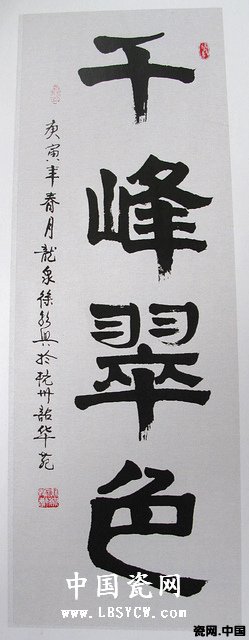 千峰翠色
庚寅年春月龙泉徐朝兴于杭州韶华苑
中国瓷网
www.LBSYCW.com
瓷网.中国